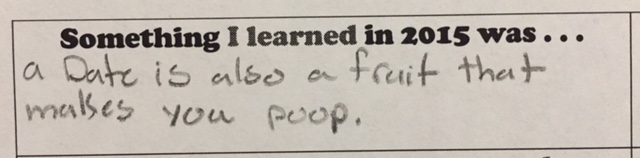 Something I learned in 2015 was...
a Date is also a fruit that
makes you poop.